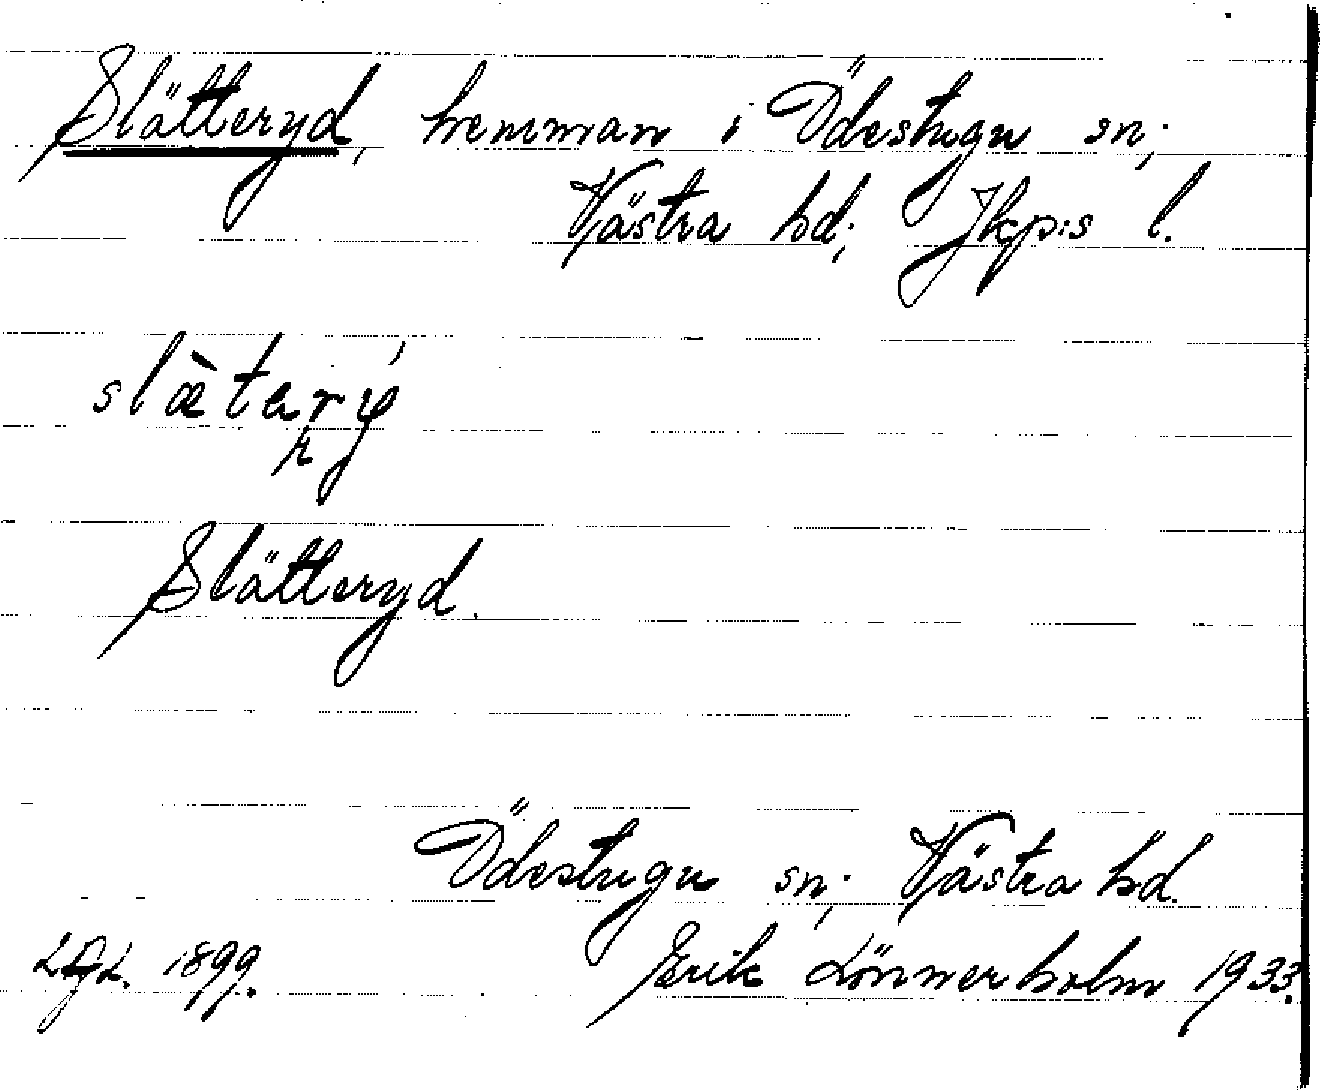 Slätteryd, hemman i Ödestugu sn;
Västra hd; Jkp:s l.
Slätteryd.
Ödestugu sn; Västra hd.
1899. Erik Lönnerholm 1933.